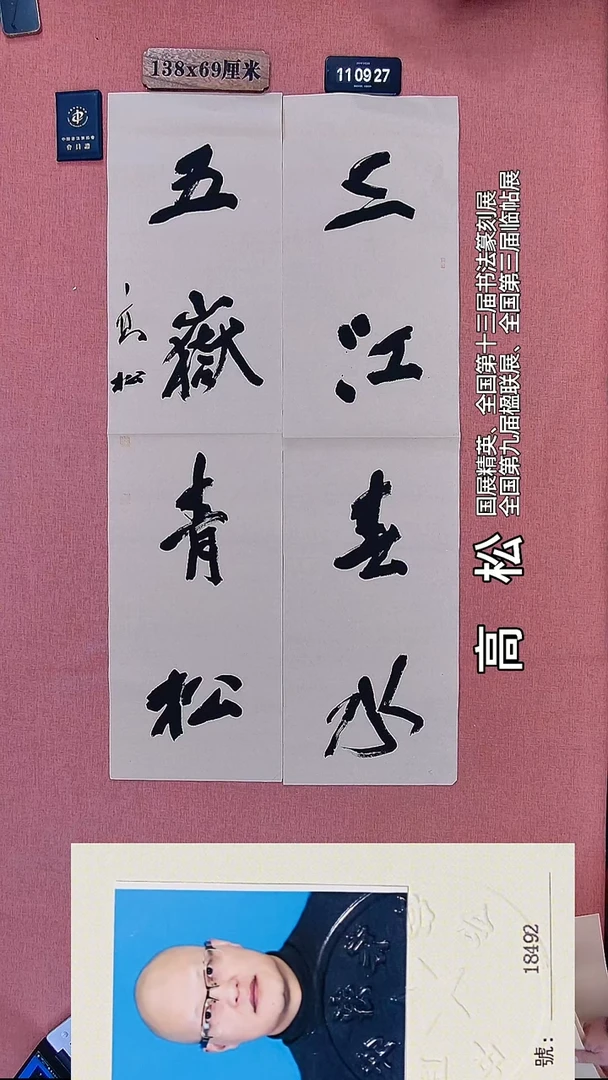 138x69厘米
11 09 27
三江春水
五嶽青松
高松
高 松
国展精英、全国第十三届书法篆刻展
全国第九届楹联展、全国第三届临帖展
號: 18492